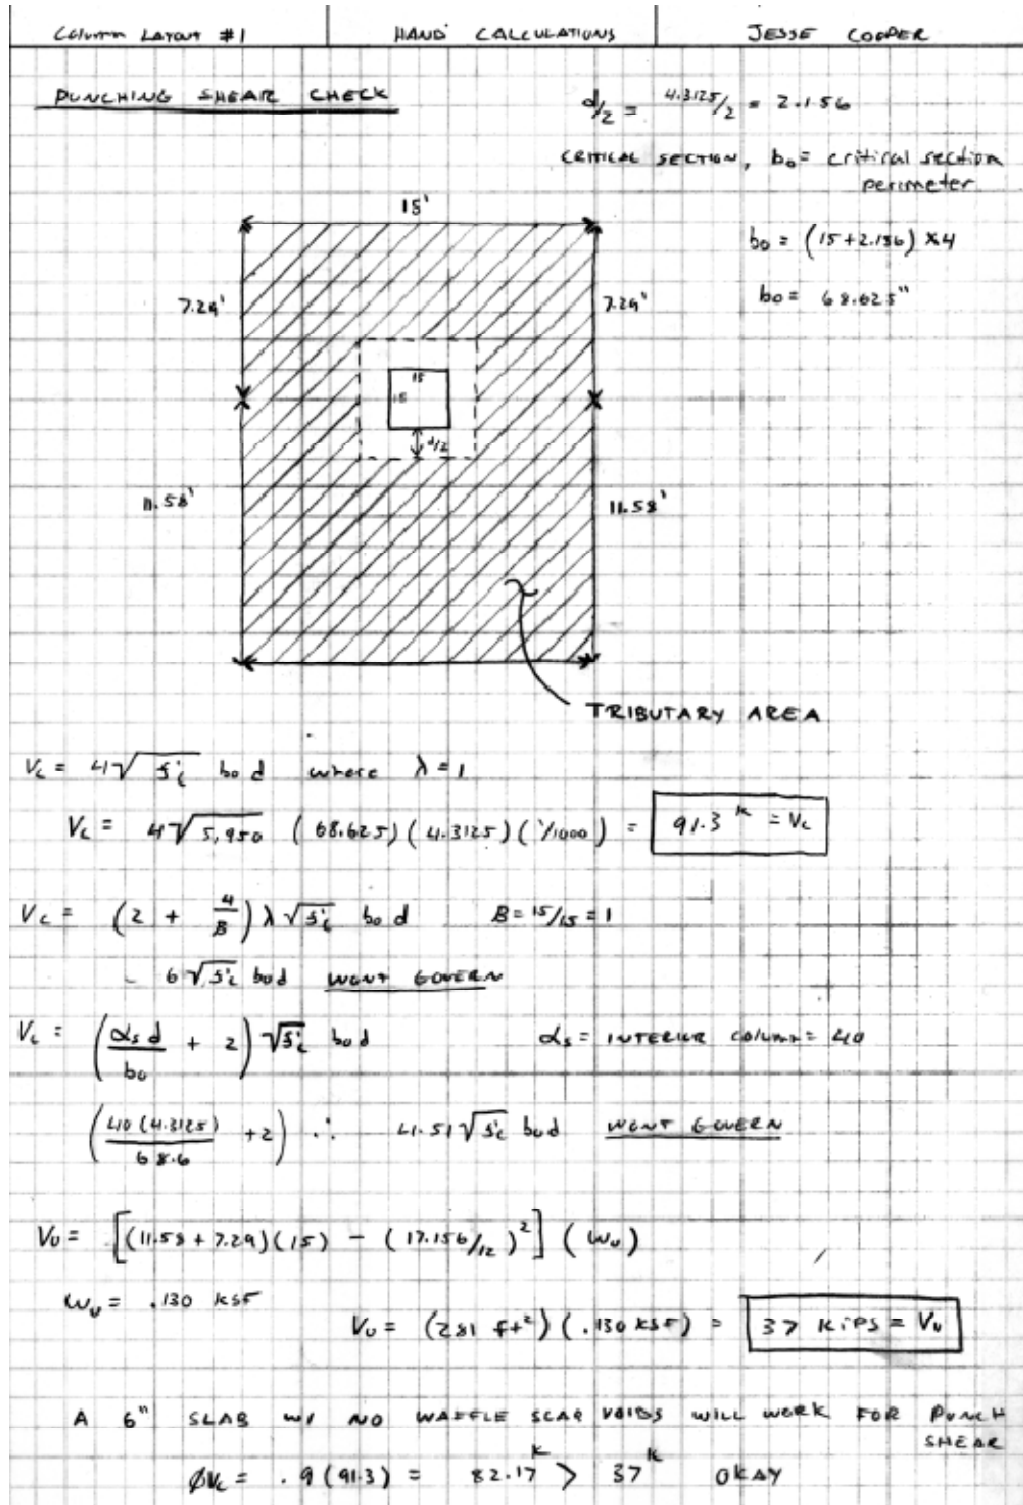 COLUMN LAYOUT #1 HAND CALCULATIONS JESSE COOPER
PUNCHING SHEAR CHECK
d/2 = 4.3125/2 = 2.156
CRITICAL SECTION, bo = critical section
perimeter
15'
bo = (15+2.156) x4
7.29'
7.29'
bo = 68.625"
15
15
d/2
11.58'
11.58'
TRIBUTARY AREA
Vc = 4√f'c bod where λ = 1
Vc = 4√5,950 (68.625)(4.3125)(1/1000) = 91.3 k = Vc
Vc = (2 + 4/B) λ√f'c bod B = 15/15 = 1
6√f'c bod WONT GOVERN
Vc = (αs d/bo + 2) √f'c bod αs = INTERIOR COLUMN = 40
(40(4.3125)/68.6 + 2) ∴ 4.51√f'c bod WONT GOVERN
Vu = [(11.58 + 7.29)(15) - (17.156/12)²] (wu)
wu = .130 KSF
Vu = (281 ft²)(.130 KSF) = 37 KIPS = Vu
A 6" SLAB w/ NO WAFFLE SLAB VOIDS WILL WORK FOR PUNCH
SHEAR
φVc = .9(91.3) = 82.17 k > 37 k OKAY